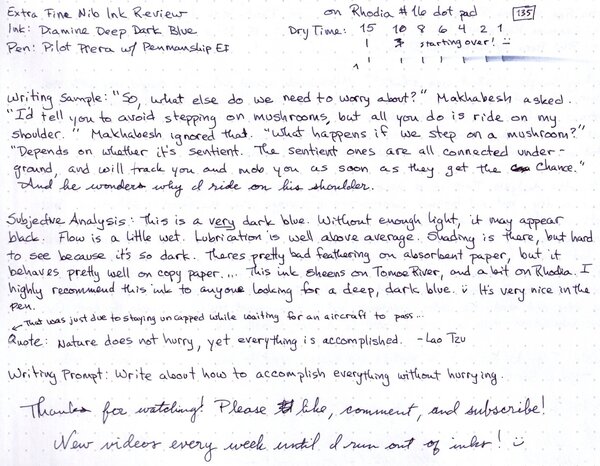 Extra Fine Nib Ink Review on Rhodia #16 dot pad 135
Ink: Diamine Deep Dark Blue Dry Time: 15 10 8 6 4 2 1
Pen: Pilot Prera w/ Penmanship EF starting over! :)
Writing Sample: "So, what else do we need to worry about?" Makhabesh asked.
"I'd tell you to avoid stepping on mushrooms, but all you do is ride on my
shoulder." Makhabesh ignored that. "What happens if we step on a mushroom?"
"Depends on whether it's sentient. The sentient ones are all connected under-
ground, and will track you and mob you as soon as they get the chance."
And he wonders why I ride on his shoulder.
Subjective Analysis: This is a very dark blue. Without enough light, it may appear
black. Flow is a little wet. Lubrication is well above average. Shading is there, but hard
to see because it's so dark. Theres pretty bad feathering on absorbent paper, but it
behaves pretty well on copy paper.... This ink sheens on Tomoe River, and a bit on Rhodia. I
highly recommend this ink to anyone looking for a deep, dark blue. :) It's very nice in the
pen.
← That was just due to staying uncapped while waiting for an aircraft to pass...
Quote: Nature does not hurry, yet everything is accomplished. -Lao Tzu
Writing Prompt: Write about how to accomplish everything without hurrying.
Thanks for watching! Please like, comment, and subscribe!
New videos every week until I run out of inks! :)